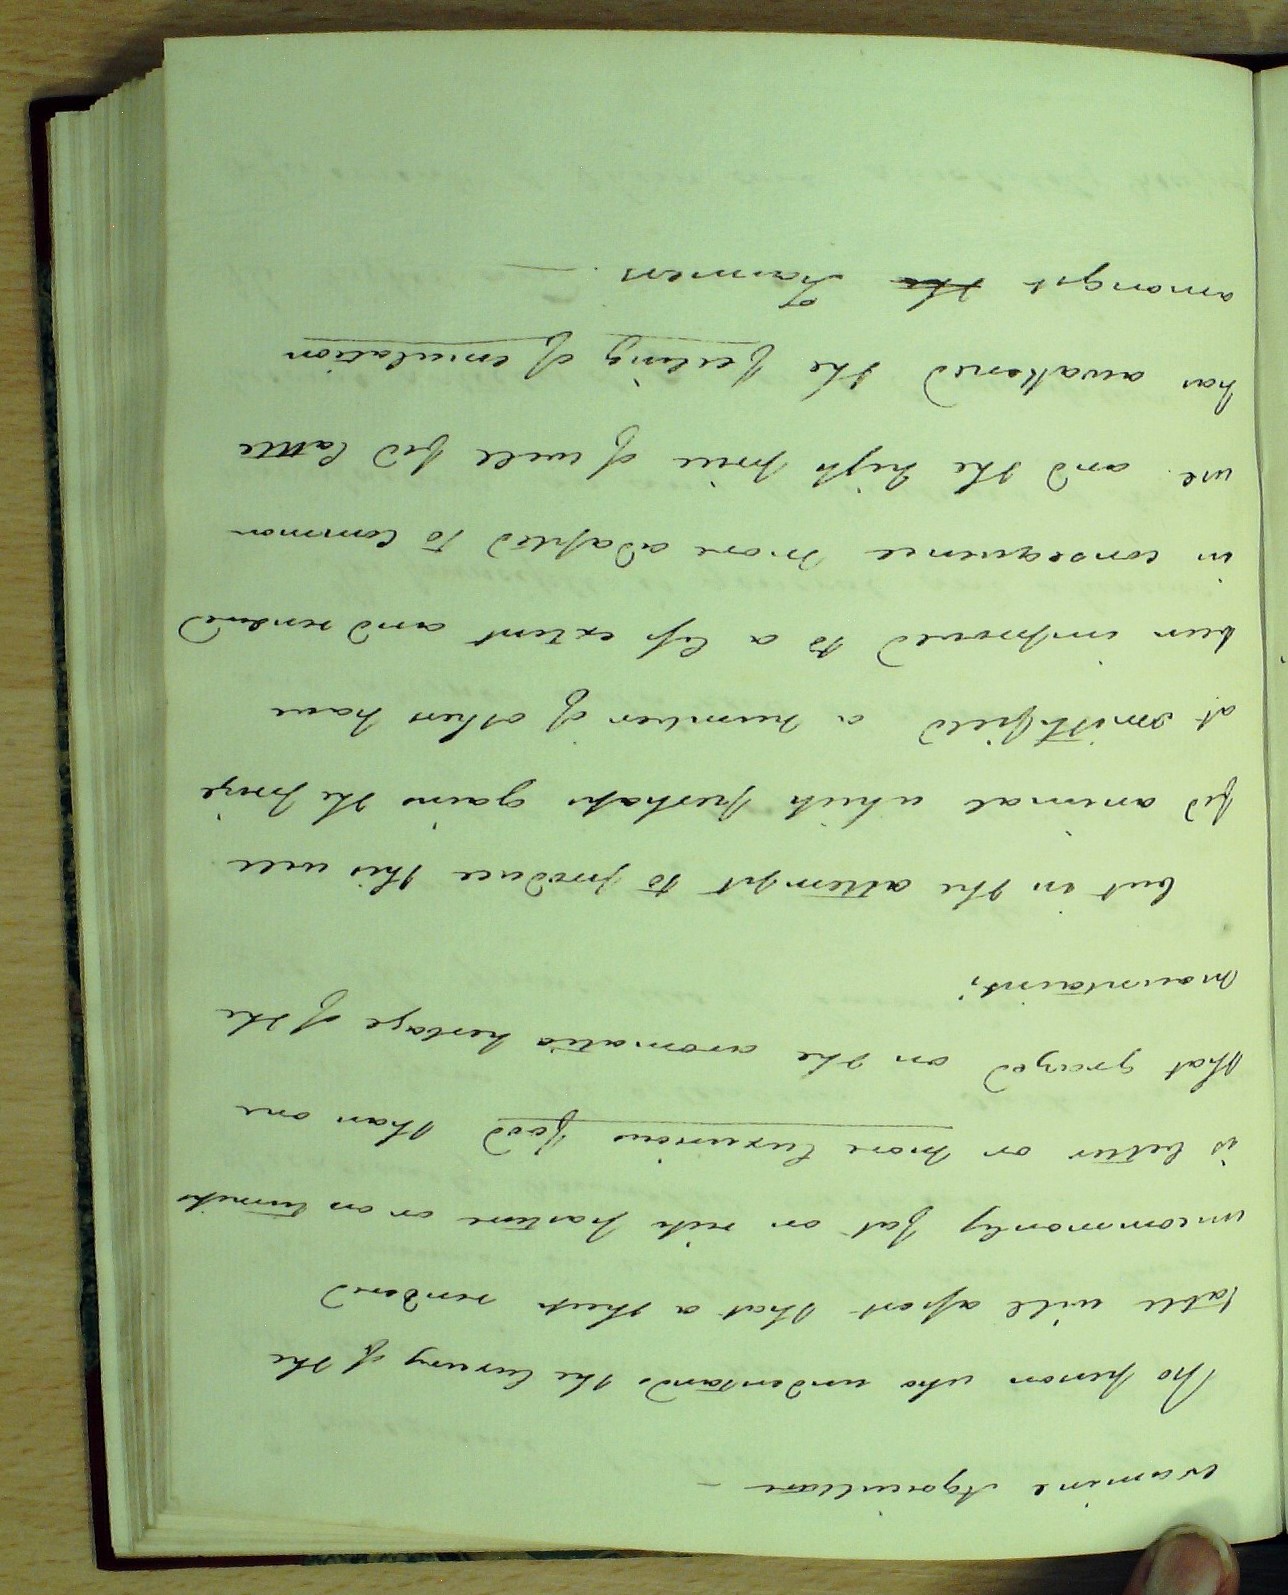 examine Agriculture —
No person who understands the luxury of the
table will assert that a sheep rendered
uncommonly fat on rich pasture or on turnips
is better or more luxurious food than one
that grazed on the aromatic herbage of the
mountains;
but in the attempt to produce this well
fed animal which perhaps gains the prize
at Smithfield a number of others have
been improved to a less extent and rendered
in consequence more adapted to Common
use. and the high price of well fed Cattle
has awakened the feeling of emulation
amongst the Farmers. —